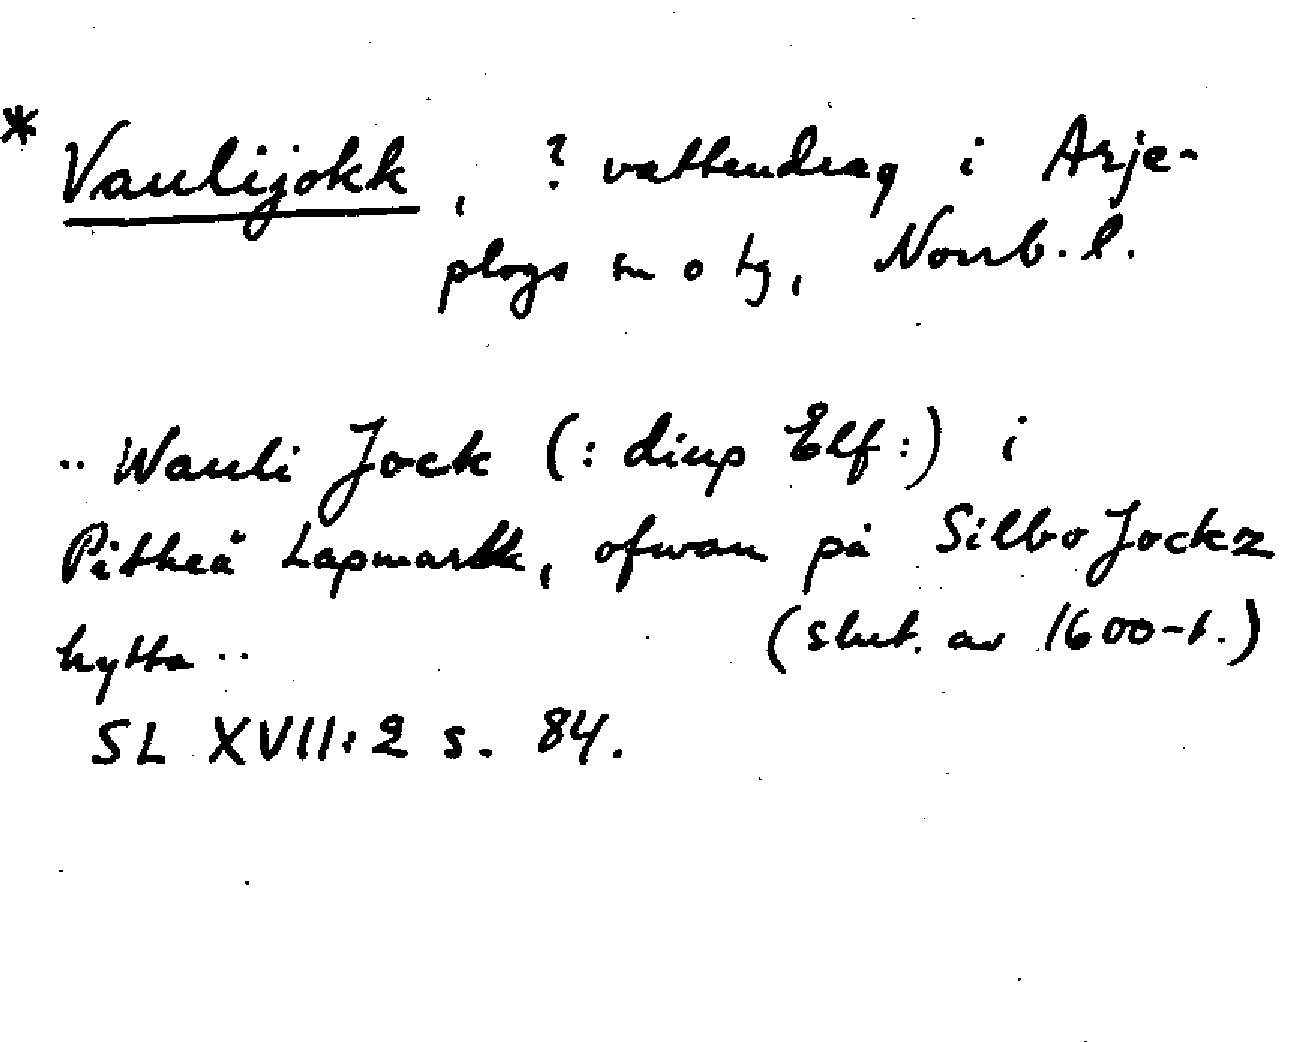 * Vaulijokk, ? vattendrag i Arje-
plogs sn o tg, Norrb. l.
.. Wauli Jock (: diup Elf :) i
Pitheå Lapmarck, ofwan på Silbo Jockz
hytta ..
(slut. av 1600-t.)
SL XVII:2 s. 84.